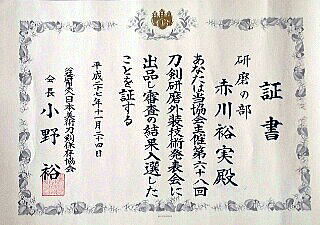 証書
研磨の部
赤川裕実殿
あなたは当協会主催第六十八回
刀剣研磨外装技術発表会に
出品し審査の結果入選した
ことを証する
平成二十七年十一月二十四日
日本美術刀剣保存協会
会長 小野裕